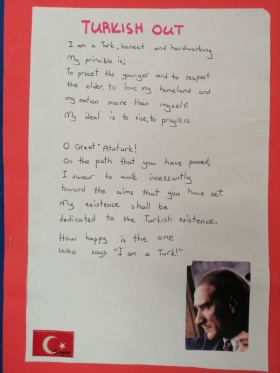 TURKISH OUT
I am a Turk, honest and hardworking
My princible is;
To procet the younger and to respect
the elder, to love my homeland and
my nation more than myself.
My ideal is to rise, to progress.
O Great Atatürk!
On the path that you have paved,
I swear to walk incessantly
toward the aims that you have set
My existence shall be
dedicated to the Turkish existence.
How happy is the one
Who says "I am a Turk!"